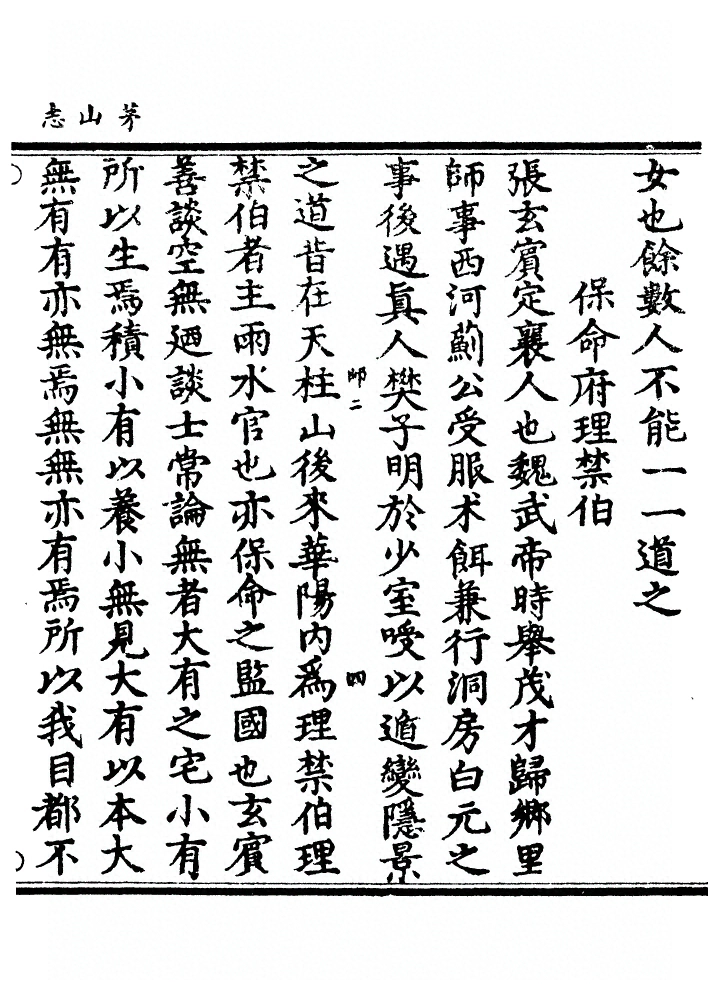 茅山志
女也餘數人不能一一道之
保命府理禁伯
張玄賓定襄人也魏武帝時舉茂才歸鄉里
師事西河薊公受服术餌兼行洞房白元之
事後遇眞人樊子明於少室嗳以遁變隱景
師二
四
之道昔在天柱山後來華陽內爲理禁伯理
禁伯者主雨水官也亦保命之監國也玄賓
善談空無廼談士常論無者大有之宅小有
所以生焉積小有以養小無見大有以本大
無有有亦無焉無無亦有焉所以我目都不